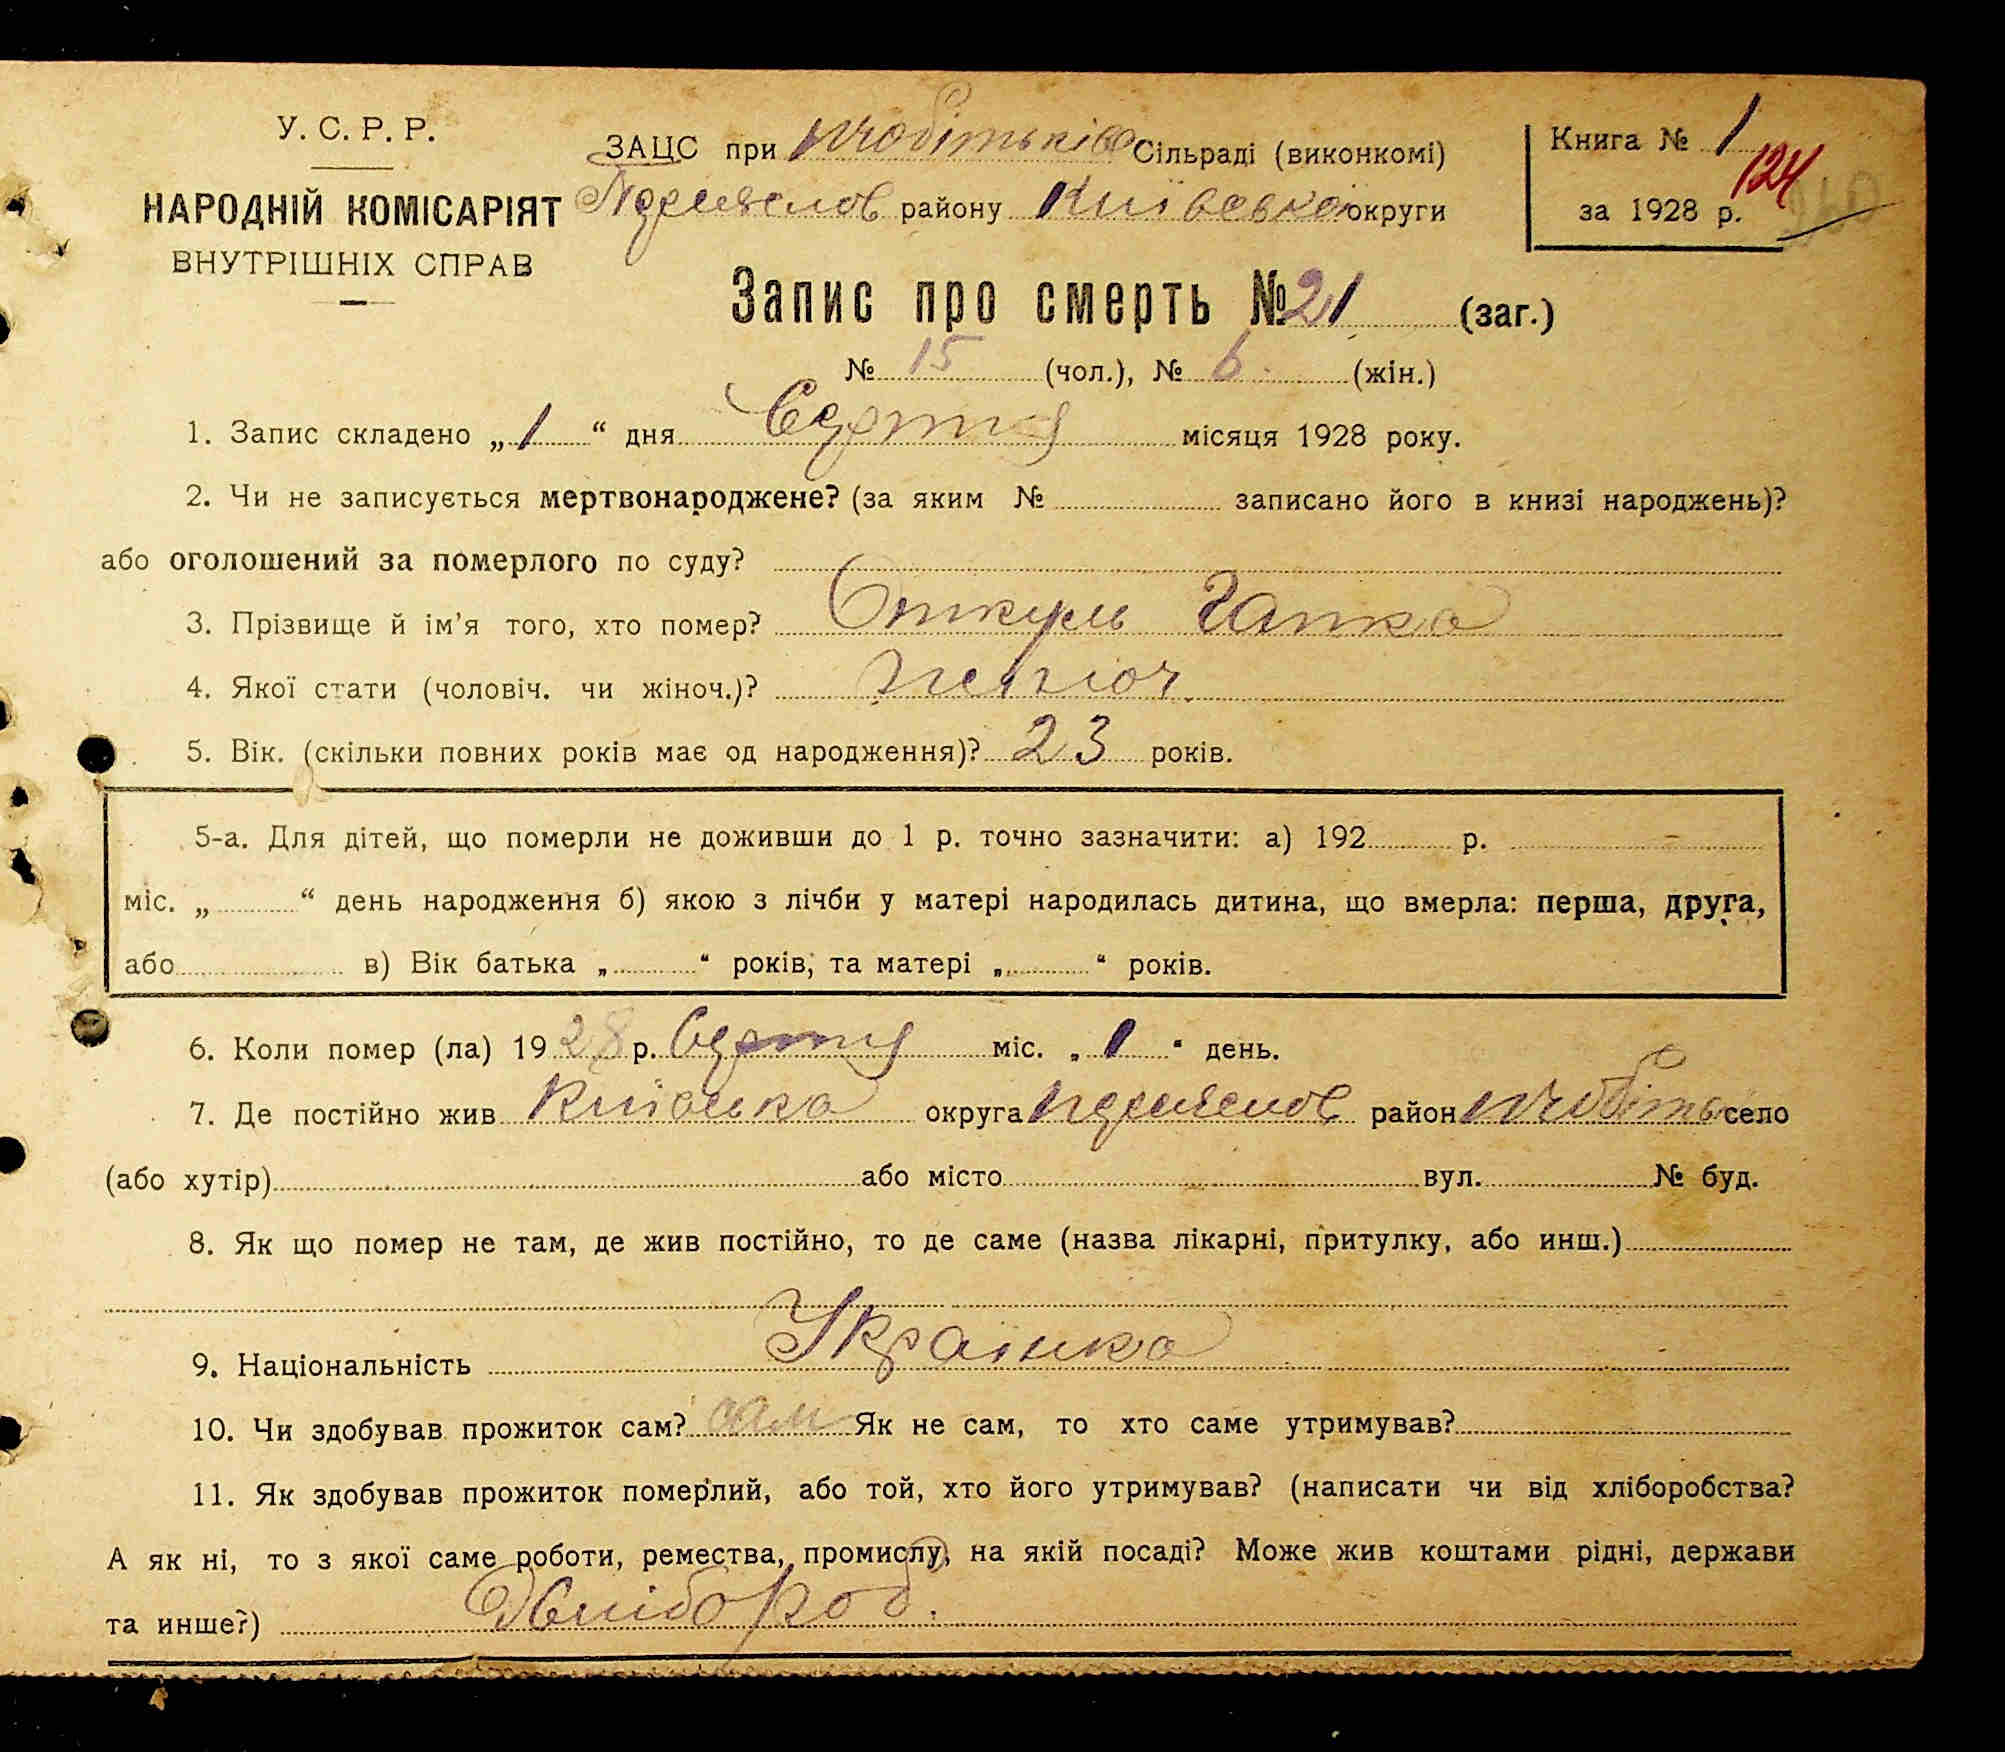 У. С. Р. Р.
НАРОДНІЙ КОМІСАРІЯТ
ВНУТРІШНІХ СПРАВ
ЗАЦС при Сільраді (виконкомі)
району Київської округи
Книга № 1
за 1928 р. 124
Запис про смерть № 21 (заг.)
№ 15 (чол.), № 6. (жін.)
1. Запис складено „ 1 “ дня Серпня місяця 1928 року.
2. Чи не записується мертвонароджене? (за яким № записано його в книзі народжень)?
або оголошений за померлого по суду?
3. Прізвище й ім'я того, хто помер? Гапка
4. Якої стати (чоловіч. чи жіноч.)? жіноч.
5. Вік. (скільки повних років має од народження)? 23 років.
5-а. Для дітей, що померли не доживши до 1 р. точно зазначити: а) 192 р.
міс. „ “ день народження б) якою з лічби у матері народилась дитина, що вмерла: перша, друга,
або в) Вік батька „ “ років, та матері „ “ років.
6. Коли помер (ла) 19 28 р. Серпня міс. „ 1 “ день.
7. Де постійно жив округа район село
(або хутір) або місто вул. № буд.
8. Як що помер не там, де жив постійно, то де саме (назва лікарні, притулку, або инш.)
9. Національність Українка
10. Чи здобував прожиток сам? сам Як не сам, то хто саме утримував?
11. Як здобував прожиток померлий, або той, хто його утримував? (написати чи від хліборобства?
А як ні, то з якої саме роботи, ремества, промислу, на якій посаді? Може жив коштами рідні, держави
та инше?) Хлібороб.